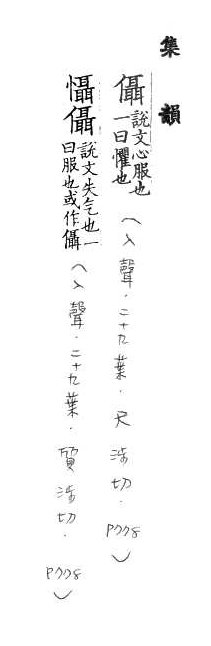 集韻
儠說文心服也一曰懼也(入聲.二十九葉.尺涉切.P778)
懾儠說文失气也一曰服也或作儠(入聲.二十九葉.質涉切.P778)